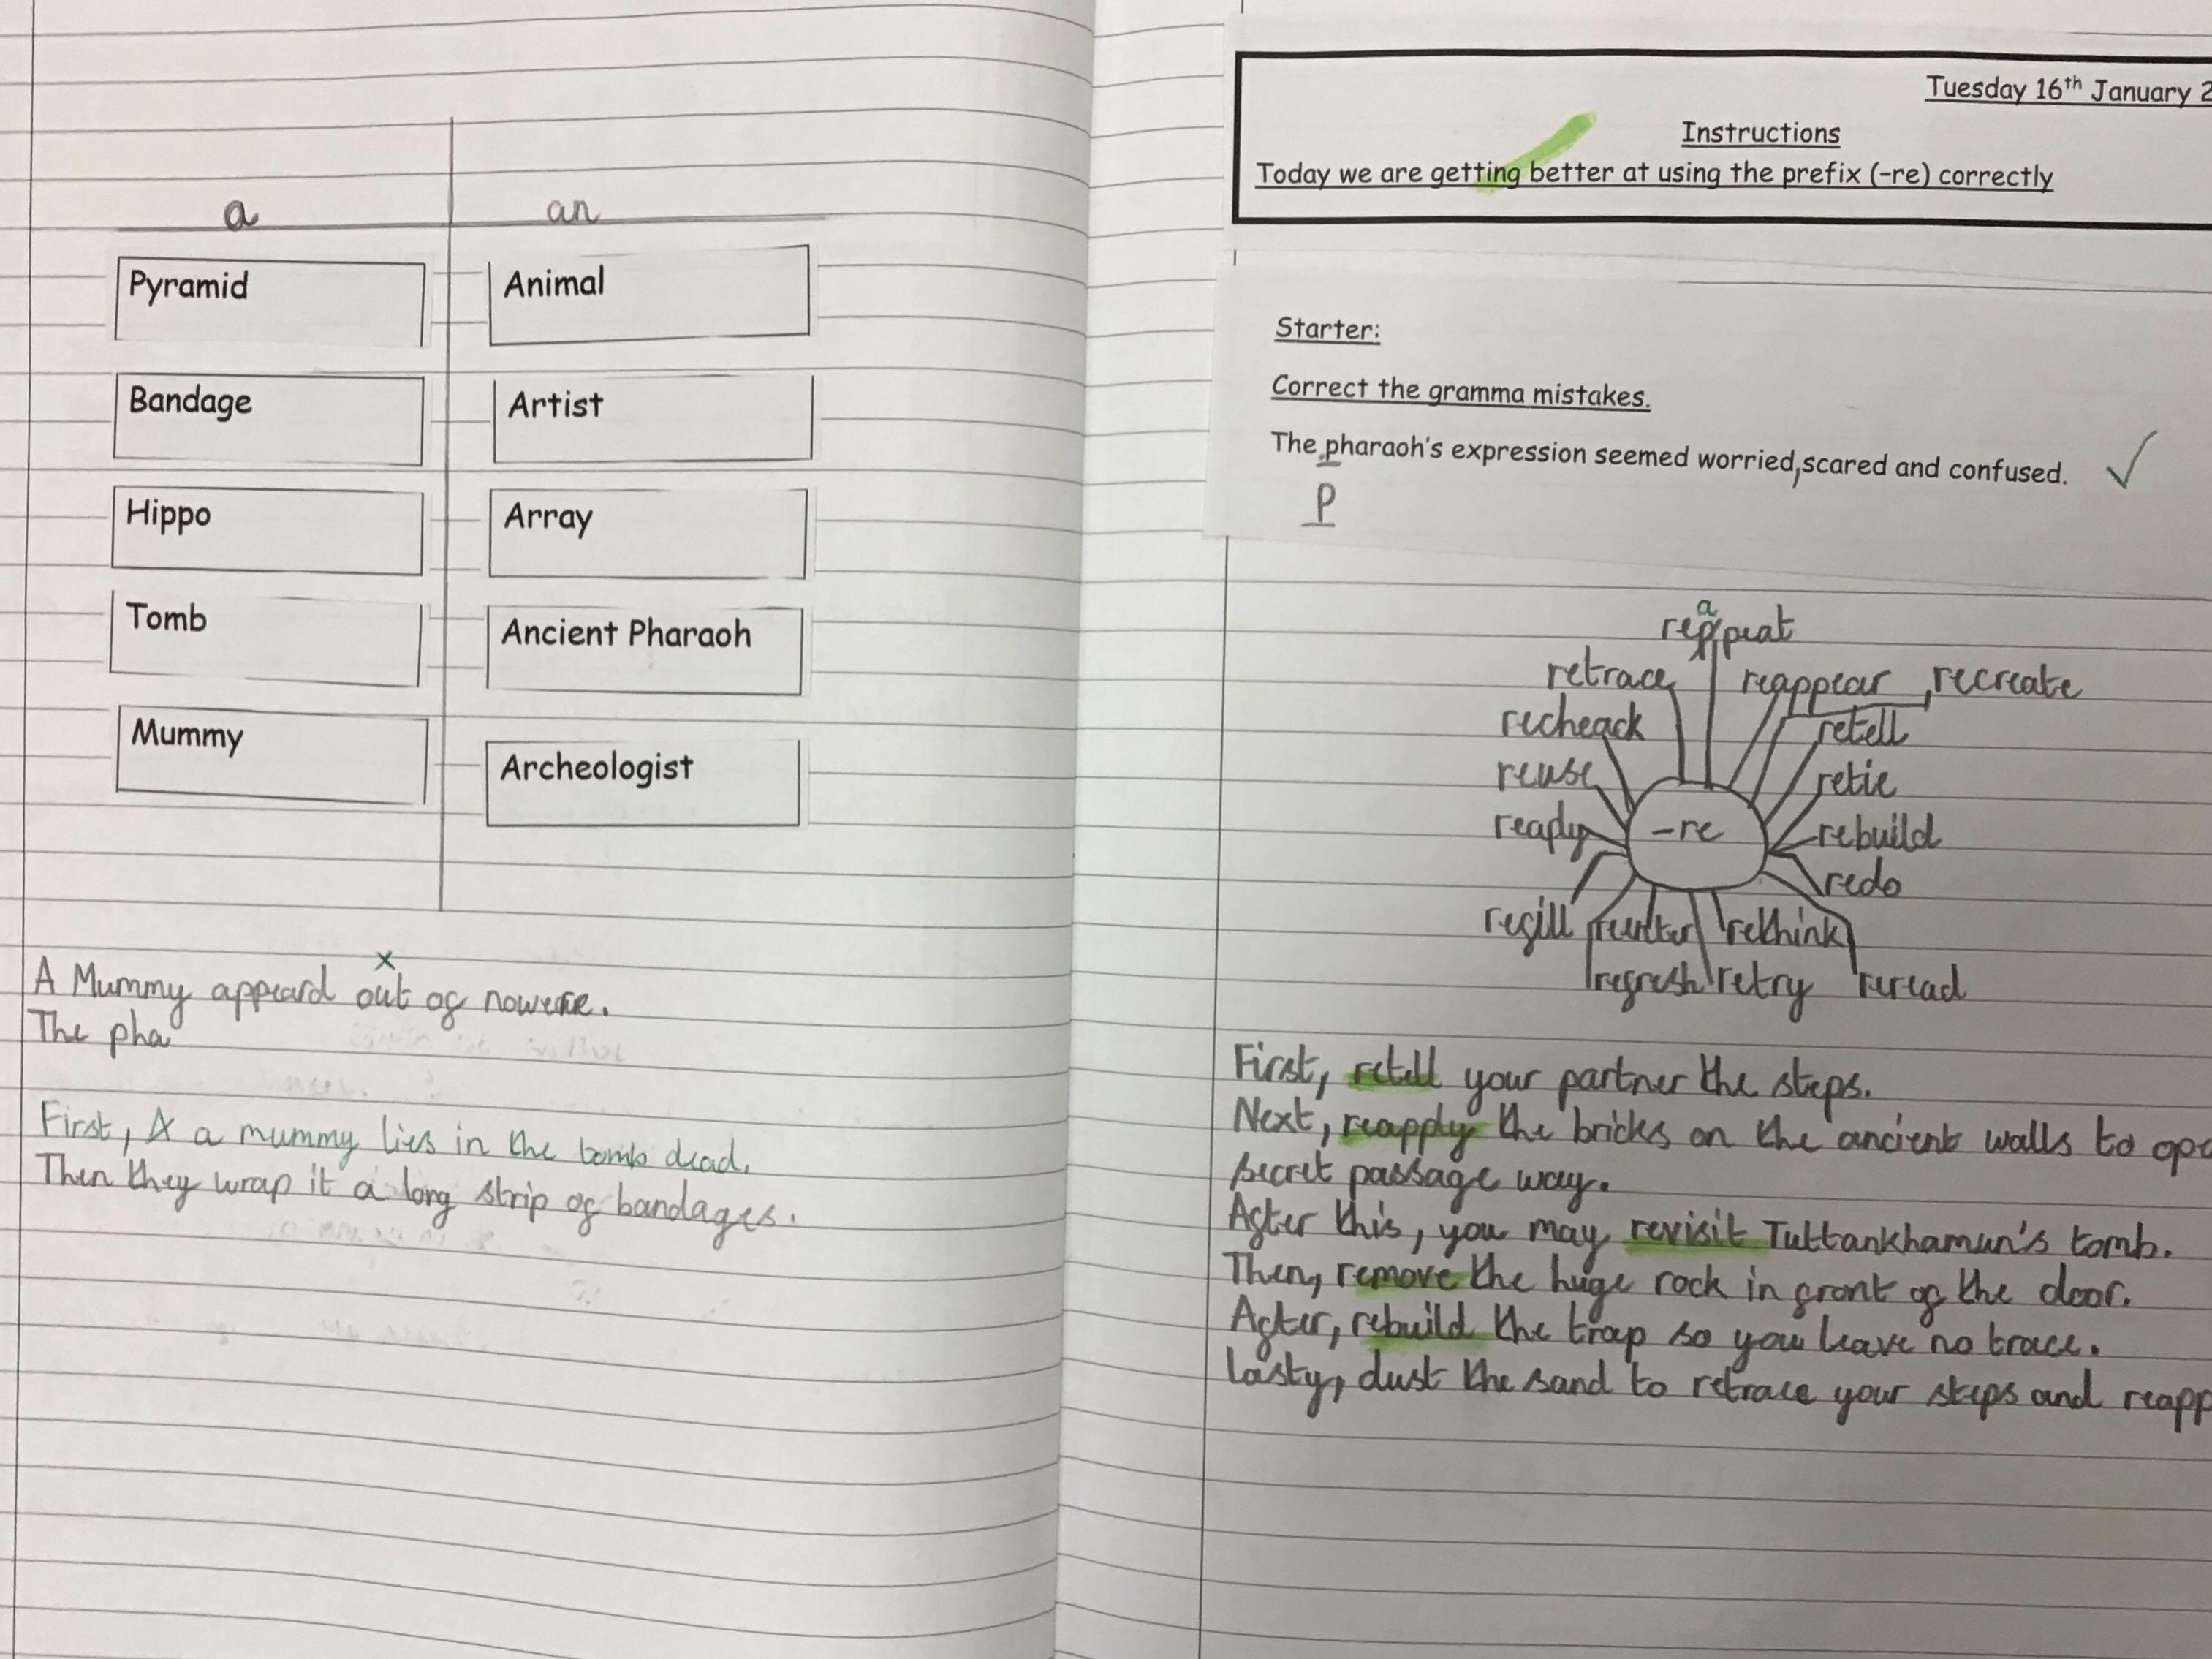 a an
Pyramid Animal
Bandage Artist
Hippo Array
Tomb Ancient Pharaoh
Mummy Archeologist
A Mummy appeard out of nowere.
The pha
First, a mummy lies in the tomb dead.
Then they wrap it a long strip of bandages.
Tuesday 16th January 2
Instructions
Today we are getting better at using the prefix (-re) correctly
Starter:
Correct the gramma mistakes.
The pharaoh's expression seemed worried, scared and confused.
P
a
retrace reappear, recreate
recheack retell
reuse retie
reaply -re rebuild
redo
refill rethink
refresh retry reread
First, retell your partner the steps.
Next, reapply the bricks on the ancient walls to
secret passage way.
After this, you may revisit Tuttankhamun's tomb.
Then, remove the huge rock in front of the door.
After, rebuild the trap so you leave no trace.
Lasty, dust the sand to retrace your steps and reapp